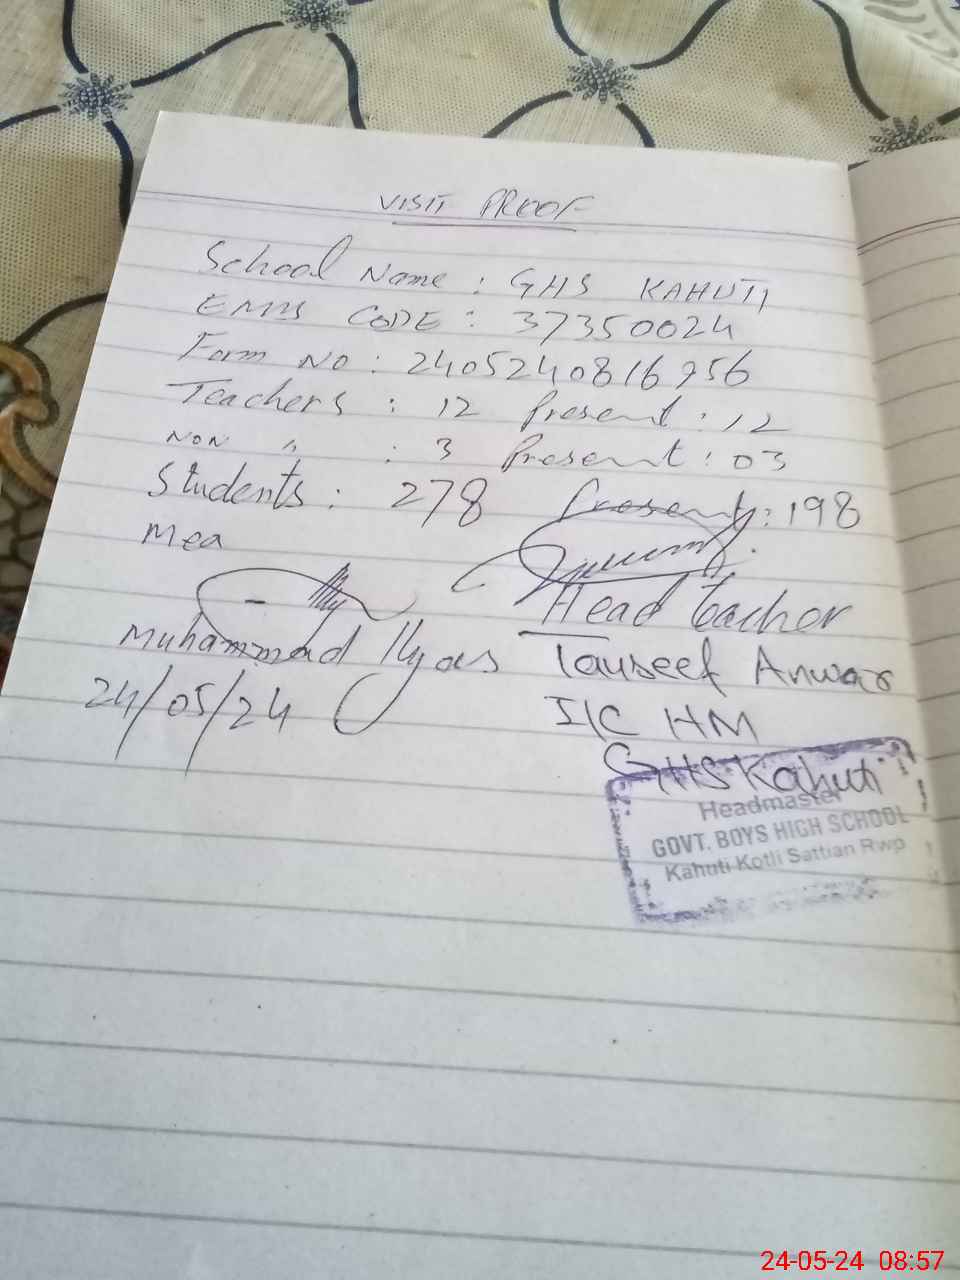 VISIT PROOF
School Name : GHS KAHUTI
EMIS CODE : 37350024
Form No : 2405240816956
Teachers : 12 Present : 12
NON " : 3 Present : 03
Students : 278 Present : 198
Mea
Head teacher
Muhammad Ilyas
Tauseef Anwar
24/05/24
I/C HM
GHS Kahuti
Headmaster
GOVT. BOYS HIGH SCHOOL
Kahuti Kotli Sattian Rwp
24-05-24 08:57